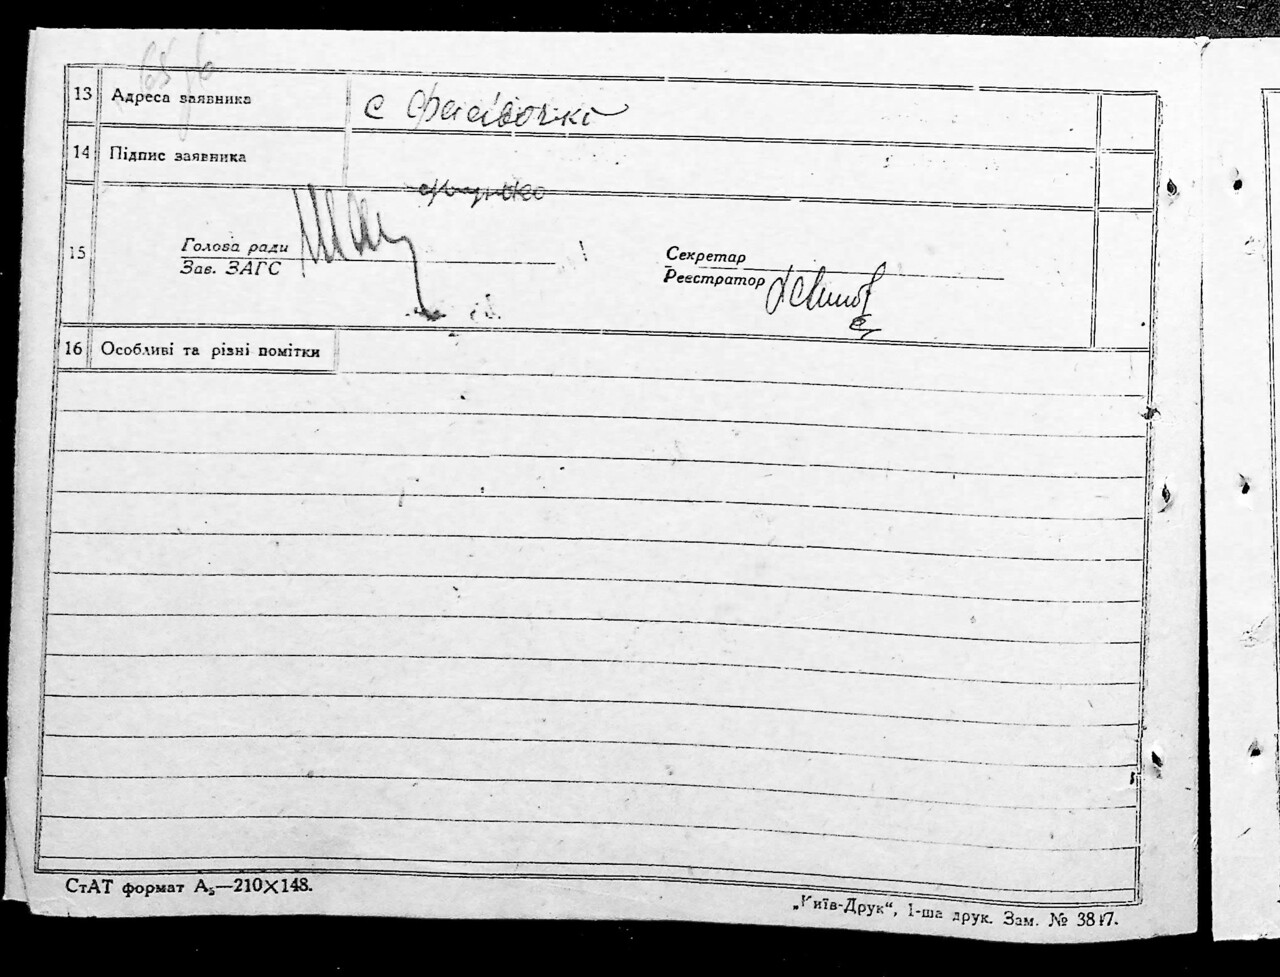 13 Адреса заявника с Фасівочкі
14 Підпис заявника
15
Голова ради
Зав. ЗАГС
Секретар
Реєстратор
16 Особливі та різні помітки
СтАТ формат А₅—210×148.
„Київ-Друк“, 1-ша друк. Зам. № 3817.